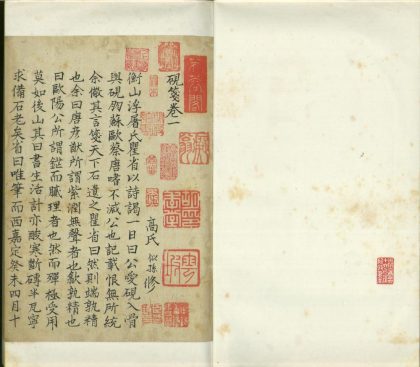 硯箋卷一
高氏 似孫 修
衡山浮屠氏瞿省以詩謁一日曰公愛硯入骨
與硯朋蘇歐蔡唐嗜不減公也記載恨無所統
余俶其言箋天下石遺之瞿省曰然則端孰精
也余曰唐彦猷所謂紫潤無聲者也歙孰精也
曰歐陽公所謂鑑而膩理者也然而殫極受用
莫如後山其曰書生活計亦酸寒斷磚半瓦寧
求備石老矣省曰唯筆而西嘉定癸未四月十